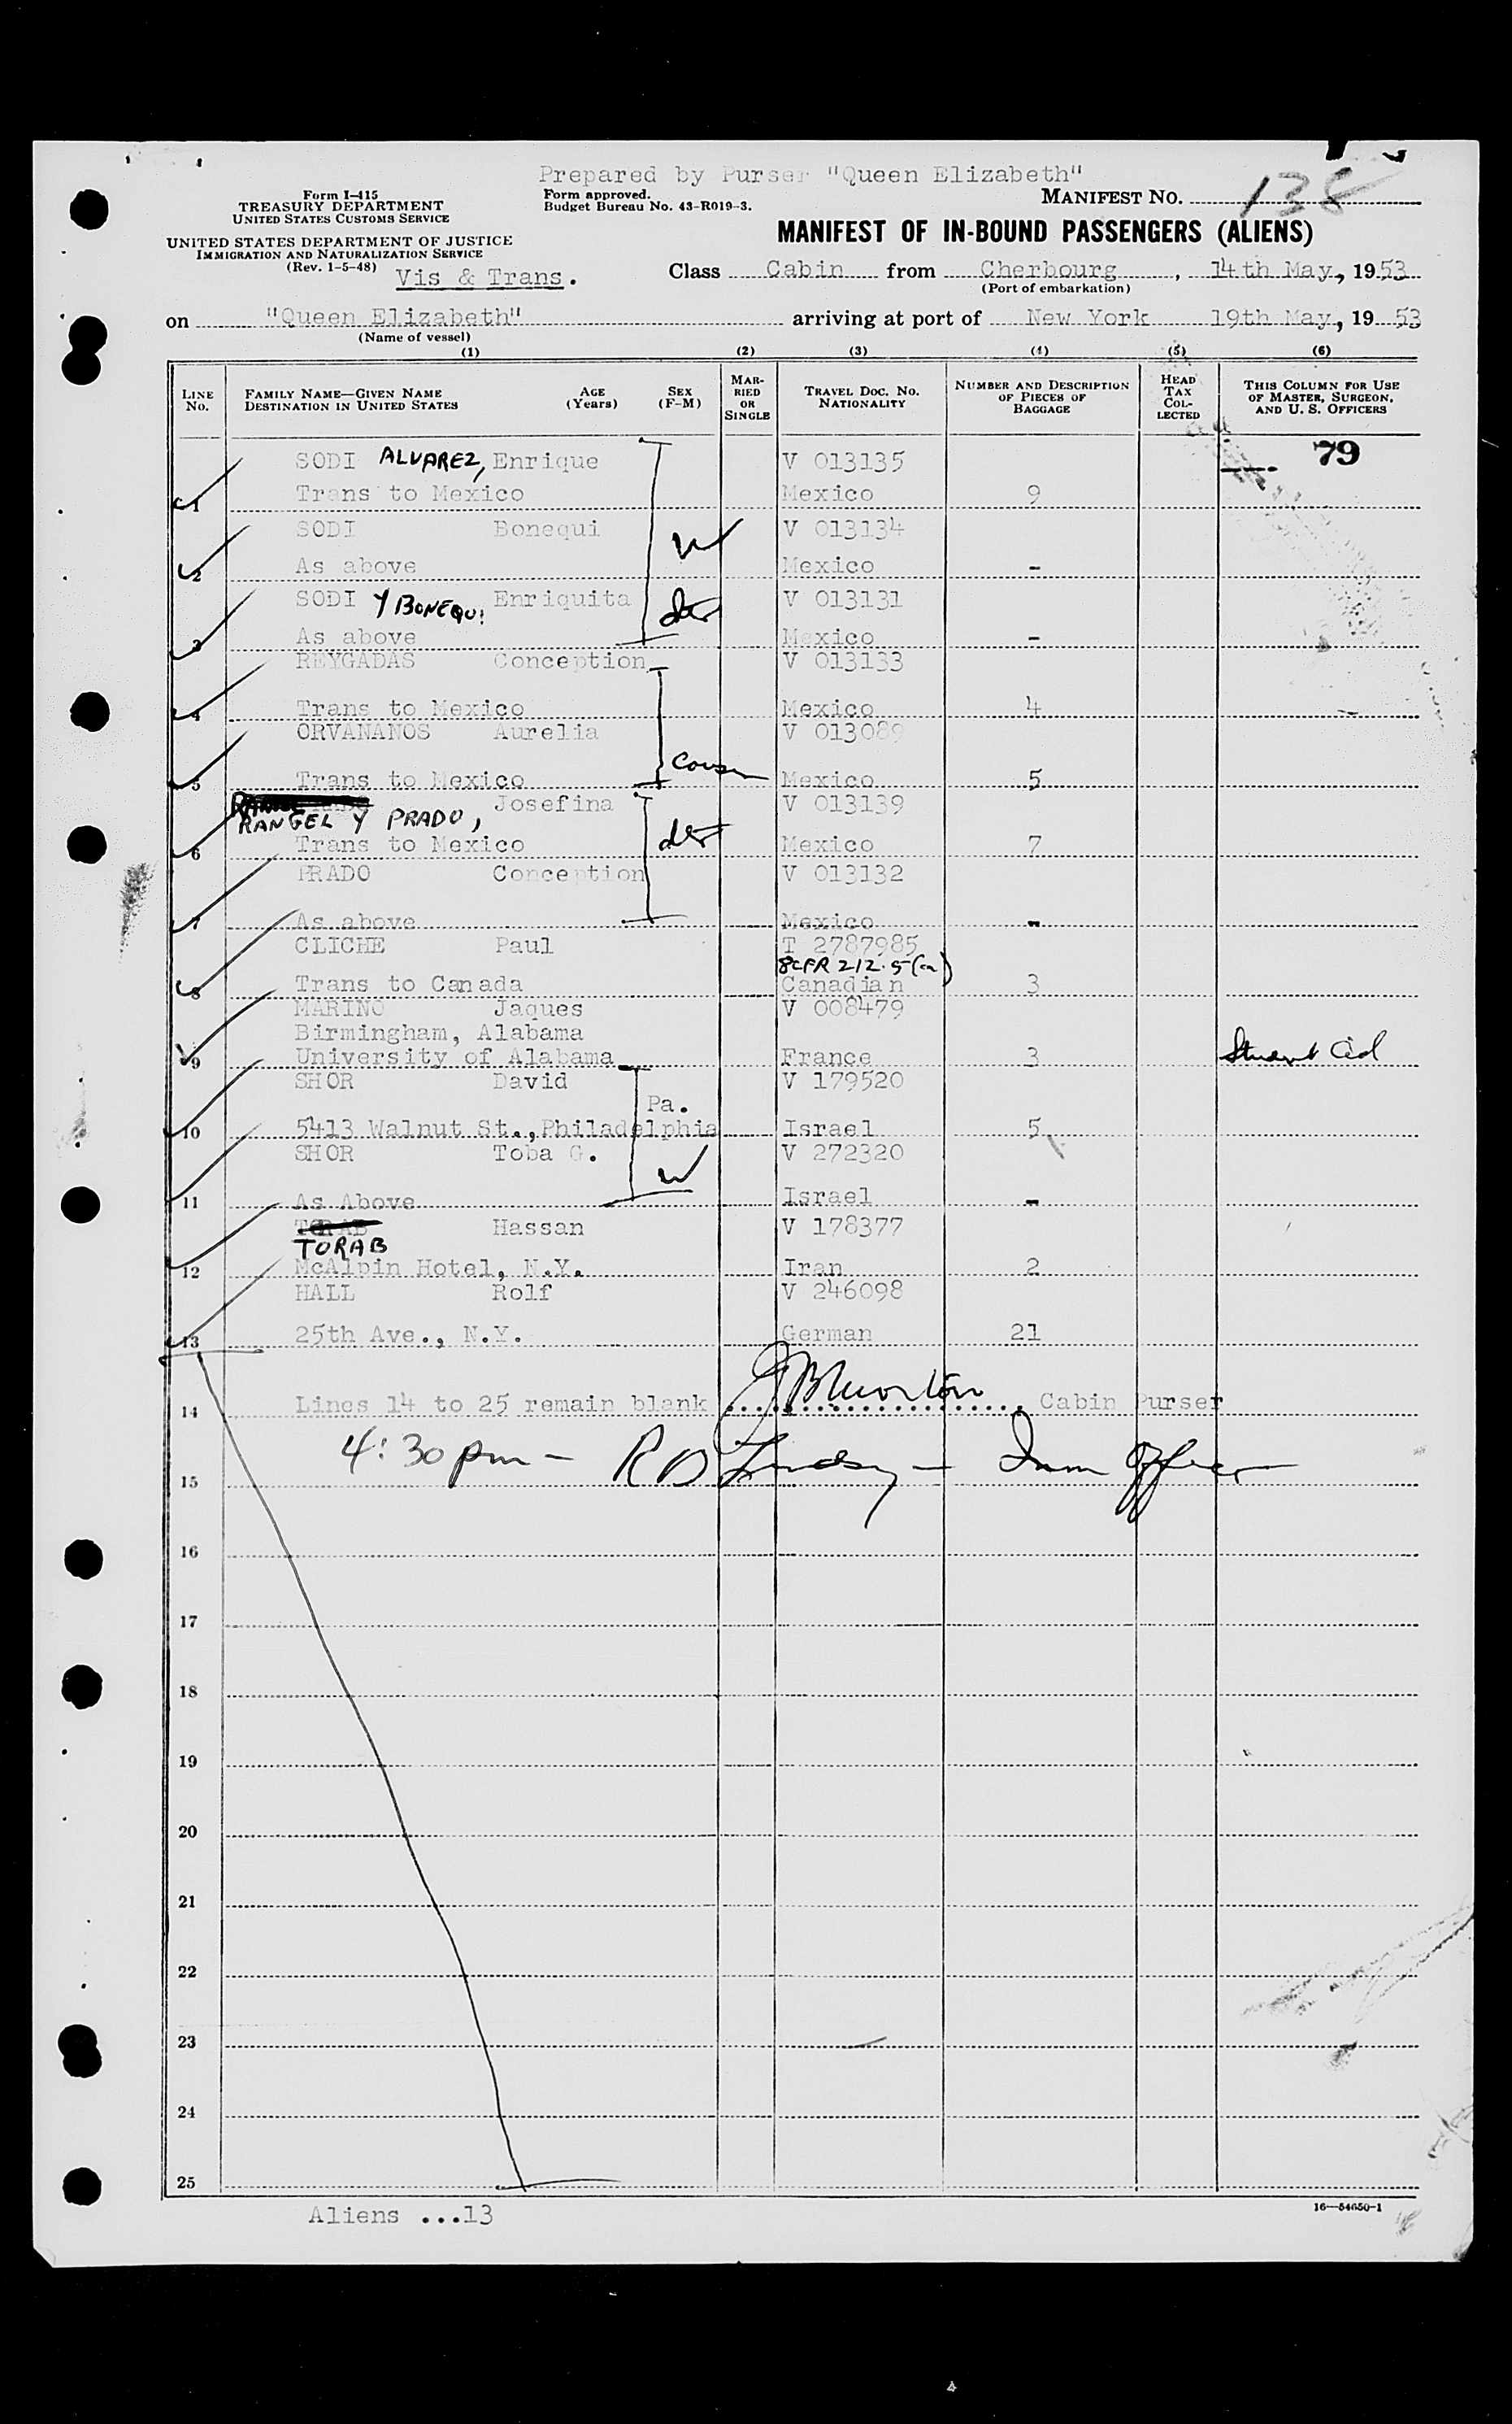 Prepared by Purser "Queen Elizabeth"
Form I-415
TREASURY DEPARTMENT
UNITED STATES CUSTOMS SERVICE
Form approved.
Budget Bureau No. 43-R019-3.
MANIFEST NO. 138
UNITED STATES DEPARTMENT OF JUSTICE
IMMIGRATION AND NATURALIZATION SERVICE
(Rev. 1-5-48)
Vis & Trans.
MANIFEST OF IN-BOUND PASSENGERS (ALIENS)
Class Cabin from Cherbourg, 14th May, 1953
(Port of embarkation)
on "Queen Elizabeth" arriving at port of New York 19th May, 1953
(Name of vessel)
(1) (2) (3) (4) (5) (6)
LINE No.
FAMILY NAME—GIVEN NAME
DESTINATION IN UNITED STATES
AGE (Years)
SEX (F-M)
MARRIED OR SINGLE
TRAVEL DOC. NO. NATIONALITY
NUMBER AND DESCRIPTION OF PIECES OF BAGGAGE
HEAD TAX COLLECTED
THIS COLUMN FOR USE OF MASTER, SURGEON, AND U. S. OFFICERS
SODI ALVAREZ, Enrique V 013135 79
1 Trans to Mexico Mexico 9
SODI Bonequi V 013134
W
2 As above Mexico -
SODI Y BONEQUI Enriquita V 013131
dtr
3 As above Mexico -
REYGADAS Conception V 013133
4 Trans to Mexico Mexico 4
ORVANANOS Aurelia V 013089
Cousin
5 Trans to Mexico Mexico 5
Josefina V 013139
RANGEL Y PRADO,
dtr
6 Trans to Mexico Mexico 7
PRADO Conception V 013132
7 As above Mexico -
CLICHE Paul T 2787985
8CFR 212.5(a)
8 Trans to Canada Canadian 3
MARINO Jaques V 008479
Birmingham, Alabama
9 University of Alabama France 3
SHOR David V 179520
Pa.
10 5413 Walnut St., Philadelphia Israel 5
SHOR Toba G. V 272320
W
11 As Above Israel -
Hassan V 178377
TORAB
12 McAlpin Hotel, N.Y. Iran 2
HALL Rolf V 246098
13 25th Ave., N.Y. German 21
14 Lines 14 to 25 remain blank Cabin Purser
4:30 pm - R D Lindsey - Imm Officer
15
16
17
18
19
20
21
22
23
24
25
Aliens ...13
16—54650-1